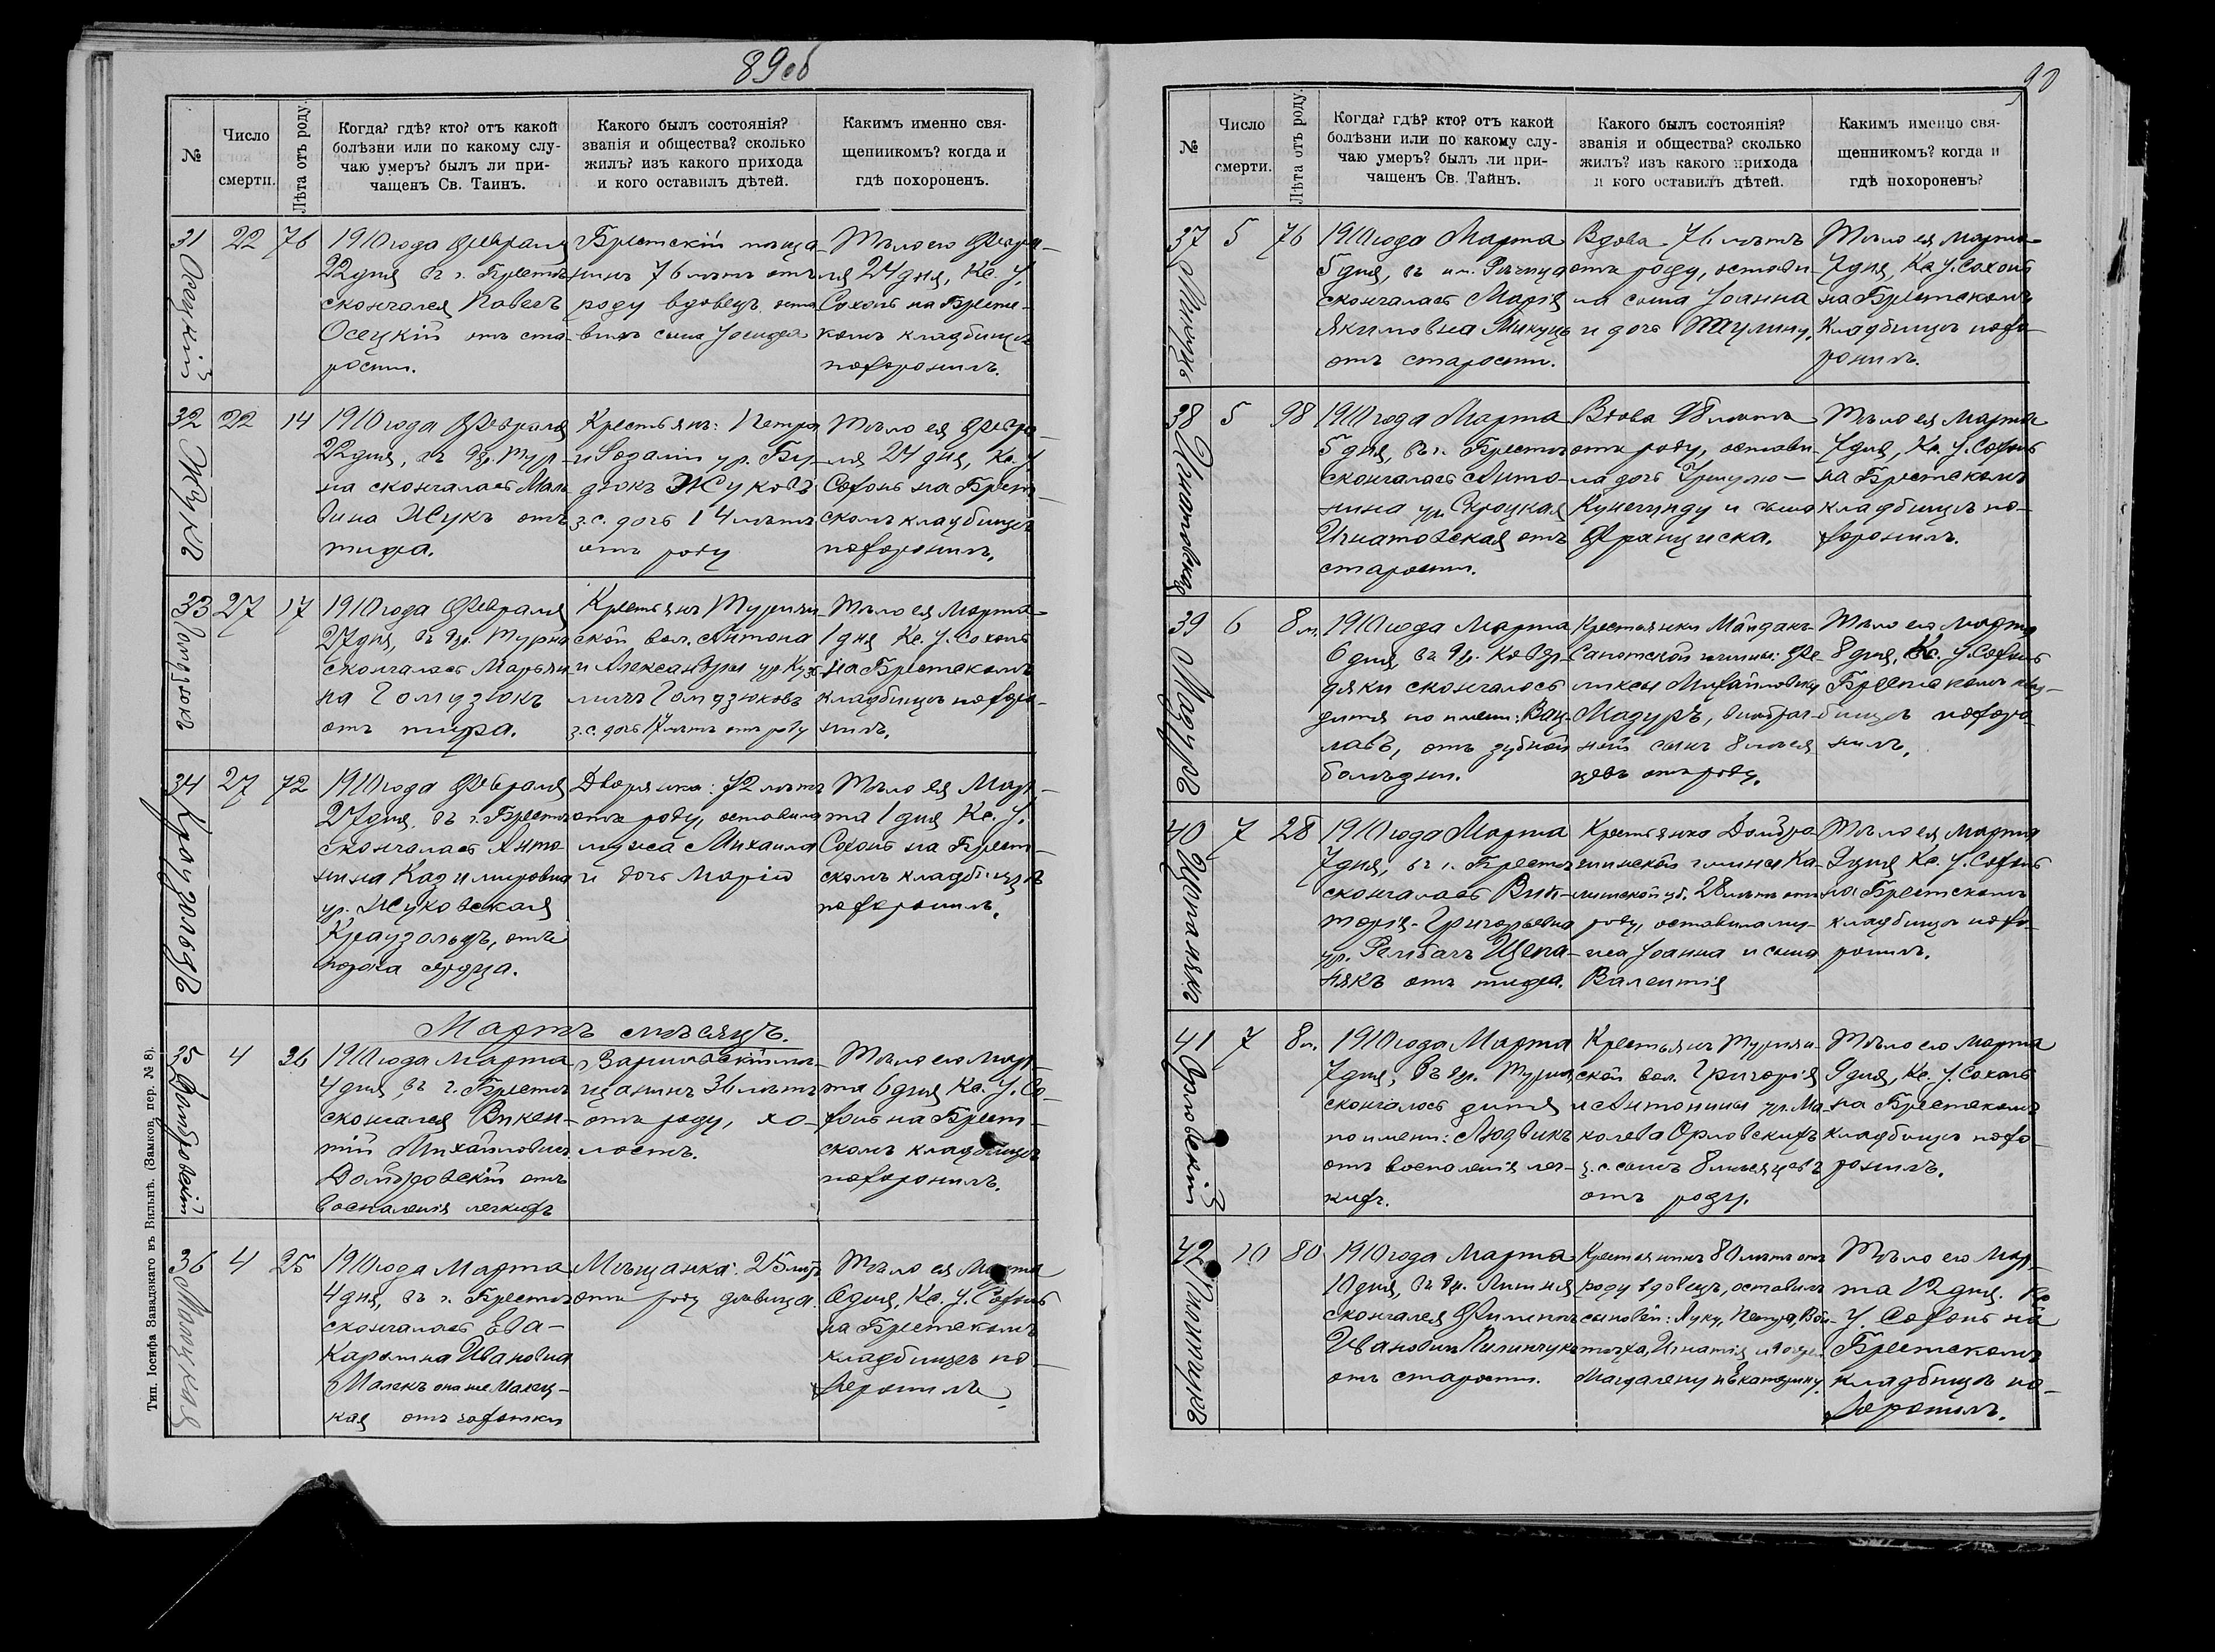 89об
№
Число
смерти.
Лѣта отъ роду.
Когда? гдѣ? кто? отъ какой
болѣзни или по какому слу-
чаю умеръ? былъ ли при-
чащенъ Св. Таинъ.
Какого былъ состоянія?
званія и общества? сколько
жилъ? изъ какого прихода
и кого оставилъ дѣтей.
Какимъ именно свя-
щенникомъ? когда и
гдѣ похороненъ.
31 Осецкій
22
76
1910 года Февраля
22 дня въ г. Брестѣ
скончался Павелъ
Осецкій отъ ста-
рости.
Брестскій мѣща-
нинъ 76 лѣтъ отъ
роду вдовецъ оста
вилъ сына
Тѣло его Февра-
ля 24 дня, Кс. У.
Сохонь на Брест-
комъ кладбищѣ
похоронилъ.
32 Жукъ
22
14
1910 года Февраля
22 дня, въ дер. Тур-
на скончалась Маль
вина Жукъ отъ
тифа.
Крестьянъ: Петра
и Розаліи ур. Бу-
дюкъ Жуковъ
з. с. дочь 14 лѣтъ
отъ роду
Тѣло ея Февра-
ля 24 дня, Кс. У.
Сохонь на Брест-
скомъ кладбищѣ
похоронилъ.
33 Гомдзюкъ
27
17
1910 года Февраля
27 дня, въ дер. Турна
скончалась Марьян
на Гомдзюкъ
отъ тифа.
Крестьянъ Турнян-
ской вол. Антона
и Александры ур. Кузь
мичъ Гомдзюковъ
з. с. дочь 17 лѣтъ отъ роду
Тѣло ея Марта
1 дня Кс. У. Сохонь
на Брестскомъ
кладбищѣ похоро-
нилъ.
34 Краузольдъ
27
72
1910 года Февраля
27 дня въ г. Брестѣ
скончалась Анто-
нина Казимировна
ур. Жуковская
Краузольдъ, отъ
порока сердца.
Дворянка: 72 лѣтъ
отъ роду, оставила
мужа Михаила
и дочь Марію
Тѣло ея Мар-
та 1 дня Кс. У.
Сохонь на Брест-
скомъ кладбищѣ
похоронилъ.
Мартъ мѣсяцъ.
35 Домбровскій
4
36
1910 года Марта
4 дня, въ г. Брестѣ
скончался Викен-
тій Михайловичъ
Домбровскій отъ
воспаленія легкихъ
мѣ-
щанинъ 36 лѣтъ
отъ роду, хо-
лостъ.
Тѣло его Мар-
та 6 дня Кс. У. Со-
хонь на Брест-
скомъ кладбищѣ
похоронилъ.
36
4
25
1910 года Марта
4 дня, въ г. Брестѣ
скончалась Ева-
Каролина Ивановна
Малекъ она же Малец-
кая отъ чахотки
Мѣщанка: 25 лѣтъ
отъ роду дѣвица.
Тѣло ея Марта
6 дня, Кс. У. Сохонь
на Брестскомъ
кладбищѣ по-
хоронилъ.
Тип. Іосифа Завадзкаго въ Вильнѣ. (Замков. пер. № 8).
90
№
Число
смерти.
Лѣта отъ роду.
Когда? гдѣ? кто? отъ какой
болѣзни или по какому слу-
чаю умеръ? былъ ли при-
чащенъ Св. Тайнъ.
Какого былъ состоянія?
званія и общества? сколько
жилъ? изъ какого прихода
и кого оставилъ дѣтей.
Какимъ именно свя-
щенникомъ? когда и
гдѣ похороненъ?
37 Микуць
5
76
1910 года Марта
5 дня, въ им. Рѣчица
скончалась Марія
Якимовна Микуць
отъ старости.
Вдова 76 лѣтъ
отъ роду, остави-
ла сына Іоанна
и дочь
Тѣло ея Марта
7 дня, Кс У. Сохонь
на Брестскомъ
Кладбищѣ похо-
ронилъ.
38 Игнатовская
5
98
1910 года Марта
5 дня, въ г. Брестѣ
скончалась Анто-
нина ур.
Игнатовская отъ
старости.
Вдова 98 лѣтъ
отъ роду, остави-
ла дочь Уршулю-
Кунегунду и сына
Франциска.
Тѣло ея Марта
7 дня, Кс. У. Сохонь
на Брестскомъ
кладбищѣ по-
хоронилъ.
39 Мазуръ
6
8 м.
1910 года Марта
6 дня, въ дер. Ковер-
дяки скончалось
дитя по имени: Вац-
лавъ, отъ зубной
болѣзни.
Крестьянки Мандакъ
гмины: Фе-
ликсы Михайловны
Мазуръ, внѣбрач-
ный сынъ 8 мѣся
цевъ отъ роду.
Тѣло его Марта
8 дня, Кс. У. Сохонь
Брестскомъ клад-
бищѣ похоро
нилъ.
40 Щепанякъ
7
28
1910 года Марта
7 дня, въ г. Брестѣ
скончалась Вик-
торія Григорьевна
ур. Рембачъ Щепа-
някъ отъ тифа.
Крестьянка
гмины Ка-
лишской губ. 28 лѣтъ отъ
роду, оставила му-
жа Іоанна и сына
Валентія
Тѣло ея, Марта
9 дня Кс. У. Сохонь
на Брестскомъ
кладбищѣ похо-
ронилъ.
41 Орловскій
7
8 м.
1910 года Марта
7 дня, въ дер. Турна
скончалось дитя
по имени: Людвикъ
отъ воспаленія лег-
кихъ.
Крестьянъ Турнян-
ской вол. Григорія
и Антонины ур. Ма-
колева Орловскихъ
з. с. сынъ 8 мѣсяцевъ
отъ роду.
Тѣло его Марта
9 дня, Кс. У. Сохонь
на Брестскомъ
кладбищѣ похо-
ронилъ.
42 Пилипчукъ
10
80
1910 года Марта
10 дня, въ дер.
скончался Филиппъ
Ивановичъ Пилипчукъ
отъ старости.
Крестьянинъ 80 лѣтъ отъ
роду вдовецъ, оставилъ
сыновей: Луку, Петра, Вой-
тѣха, Игнатія и дочерей
Магдалену и Екатерину.
Тѣло его Мар-
та 12 дня. Кс.
У. Сохонь на
Брестскомъ
кладбищѣ по-
хоронилъ.